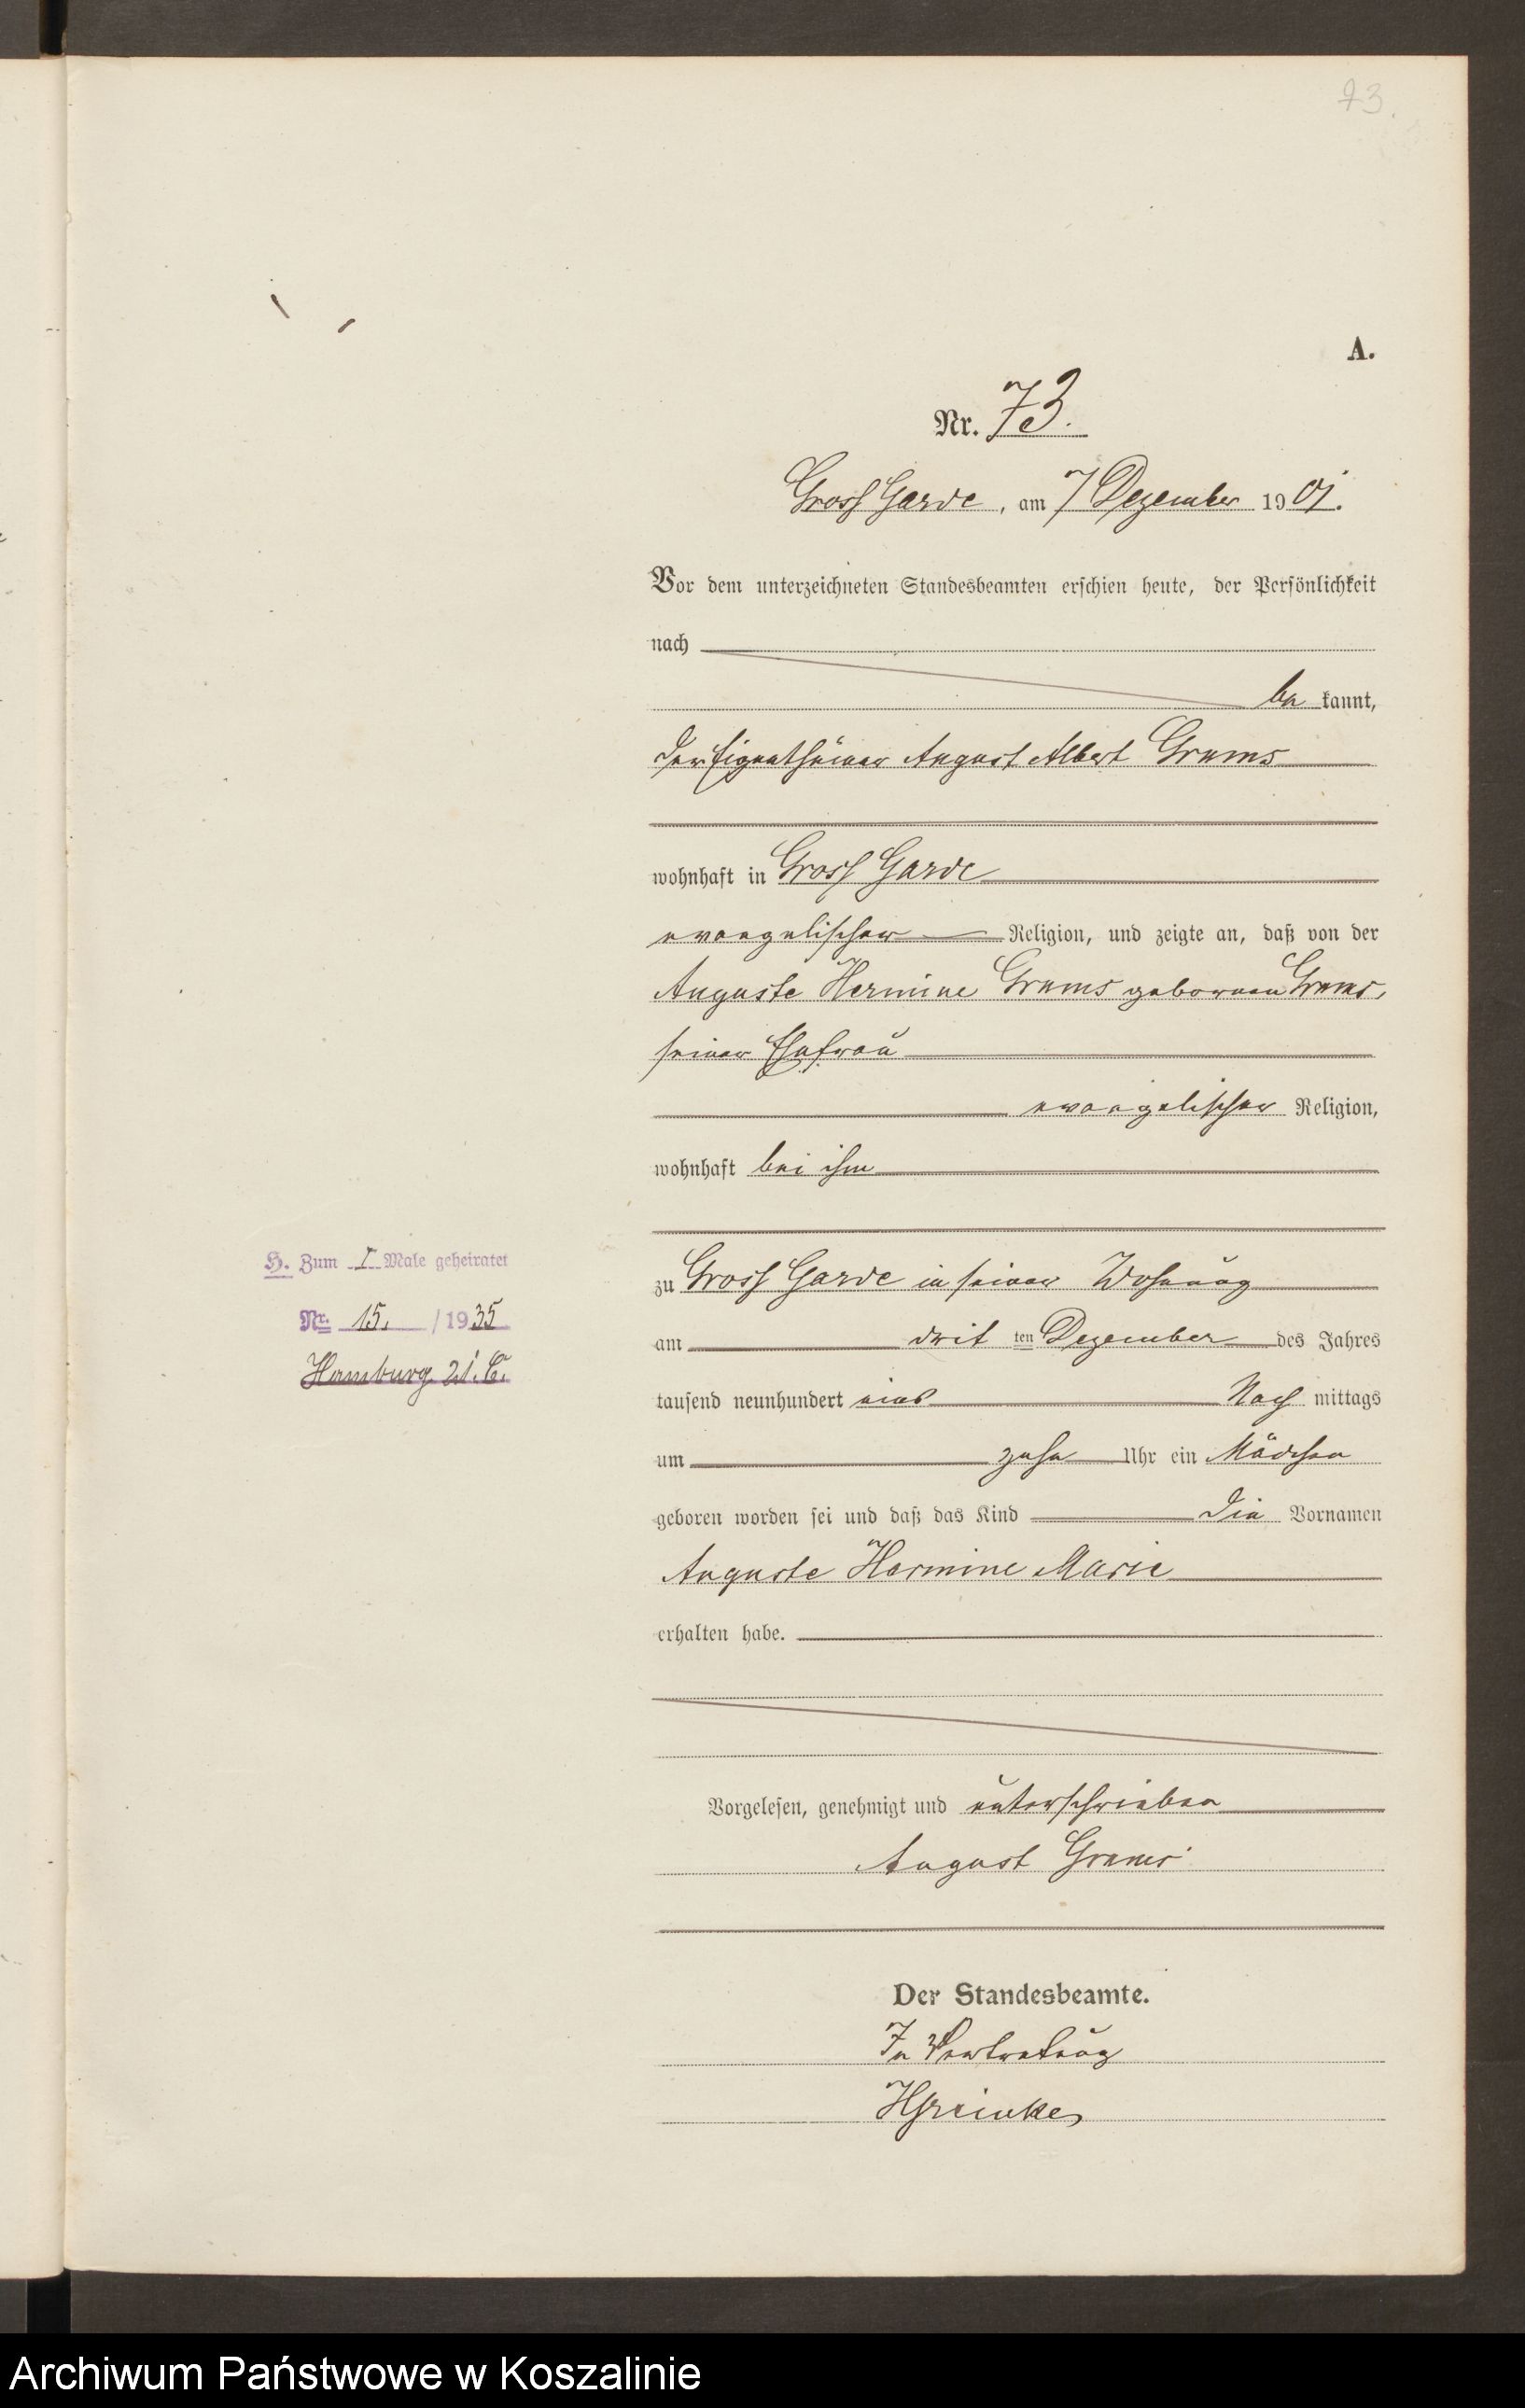 73.
A.
Nr. 73.
Gross Garde, am 7 Dezember 1901.
Vor dem unterzeichneten Standesbeamten erschien heute, der Persönlichkeit
nach
be kannt,
der Eigenthümer August Albert Grums
wohnhaft in Gross Garde
evangelischer Religion, und zeigte an, daß von der
Auguste Hermine Grums geborenen Grums,
seiner Ehefrau
evangelischer Religion,
wohnhaft bei ihm
zu Gross Garde in seiner Wohnung
am dritten Dezember des Jahres
tausend neunhundert eins Nach mittags
um zehn Uhr ein Mädchen
geboren worden sei und daß das Kind die Vornamen
Auguste Hermine Marie
erhalten habe.
Vorgelesen, genehmigt und unterschrieben
August Grums
Der Standesbeamte.
In Vertretung
H. Zum I Male geheiratet
Nr. 15. /1935
Hamburg 21.
Archiwum Państwowe w Koszalinie